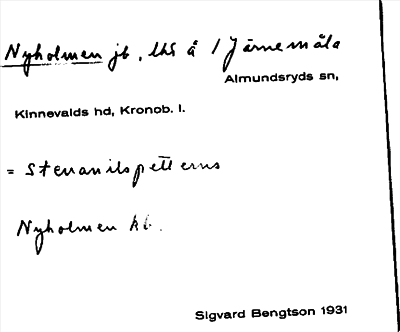 Nyholmen jb, lhs å 1 Järnemåla
Almundsryds sn,
Kinnevalds hd, Kronob. l.
= Stenanilspetterns
Nyholmen kb.
Sigvard Bengtson 1931